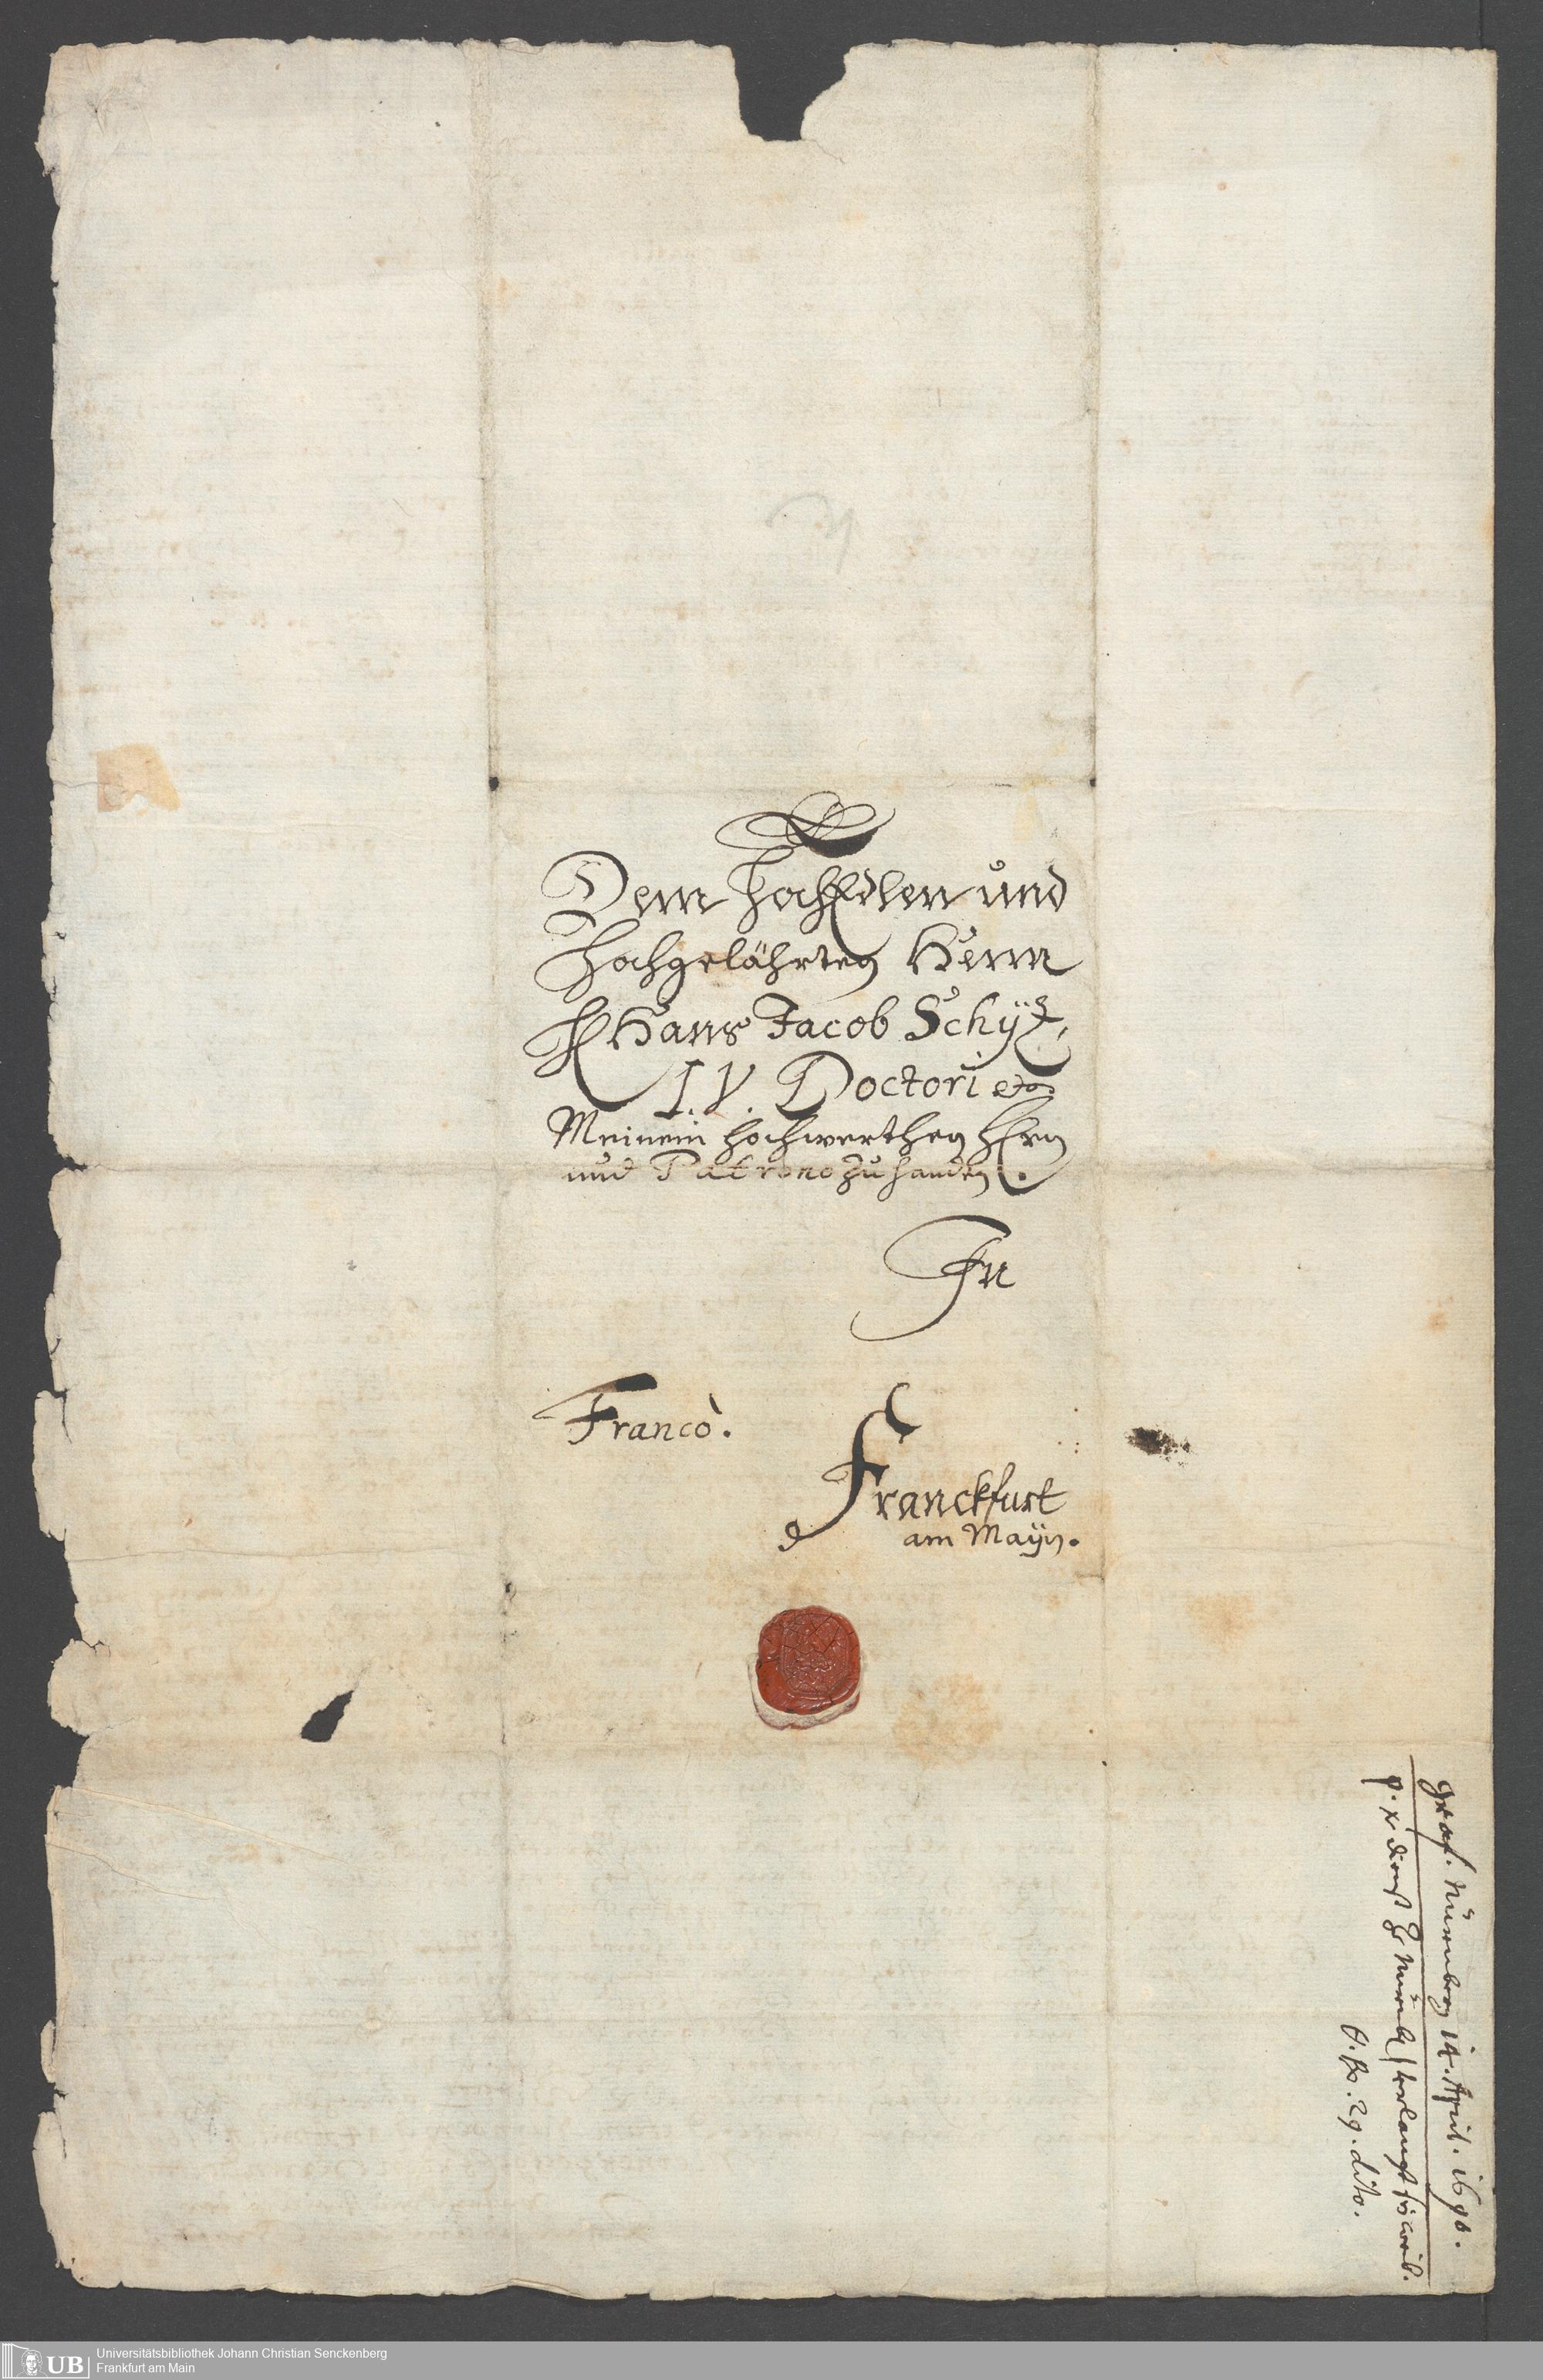 Dem HochEdlen und
Hochgelährten Herrn
H Hans Jacob Schütz,
I. V. Doctori etc
Meinem hochwerthen Hern
und Patrono zu handen.
In
Franco.
Franckfurt
am Mayn.
Graf. Nürnberg 14. April. 1690.
29. dito.
UB
Universitätsbibliothek Johann Christian Senckenberg
Frankfurt am Main